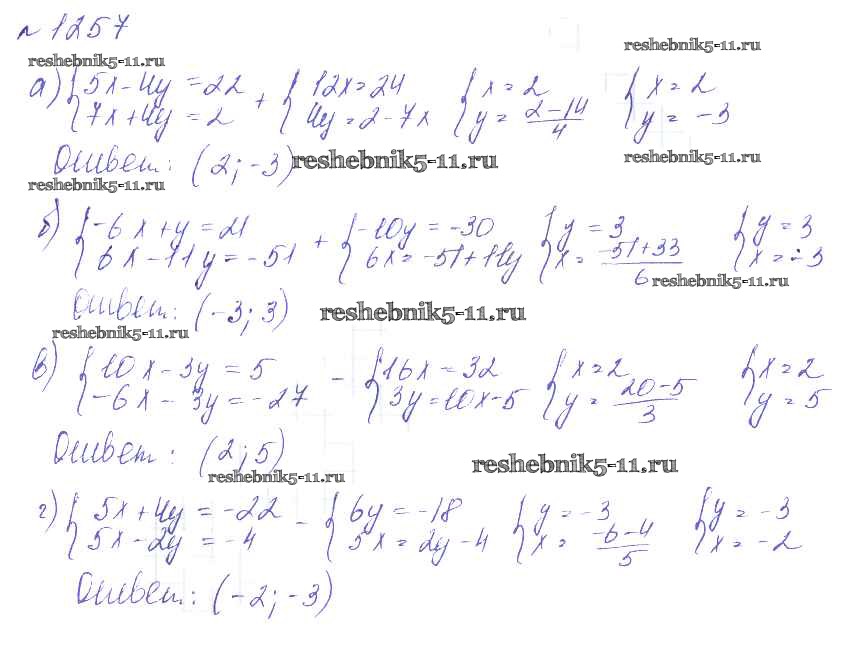 № 1257
reshebnik5-11.ru
reshebnik5-11.ru
а) { 5x - 4y = 22 + { 12x = 24 { x = 2 { x = 2
7x + 4y = 2 4y = 2 - 7x y = 2-14/4 y = -3
Ответ: (2; -3) reshebnik5-11.ru reshebnik5-11.ru
reshebnik5-11.ru
б) { -6x + y = 21 + { -10y = -30 { y = 3 { y = 3
6x - 11y = -51 6x = -51 + 11y x = -51+33/6 x = -3
reshebnik5-11.ru
Ответ: (-3; 3) reshebnik5-11.ru
reshebnik5-11.ru
в) { 10x - 3y = 5 - { 16x = 32 { x = 2 { x = 2
-6x - 3y = -27 3y = 10x - 5 y = 20-5/3 y = 5
Ответ: (2; 5)
reshebnik5-11.ru reshebnik5-11.ru
г) { 5x + 4y = -22 - { 6y = -18 { y = -3 { y = -3
5x - 2y = -4 5x = 2y - 4 x = -6-4/5 x = -2
Ответ: (-2; -3)